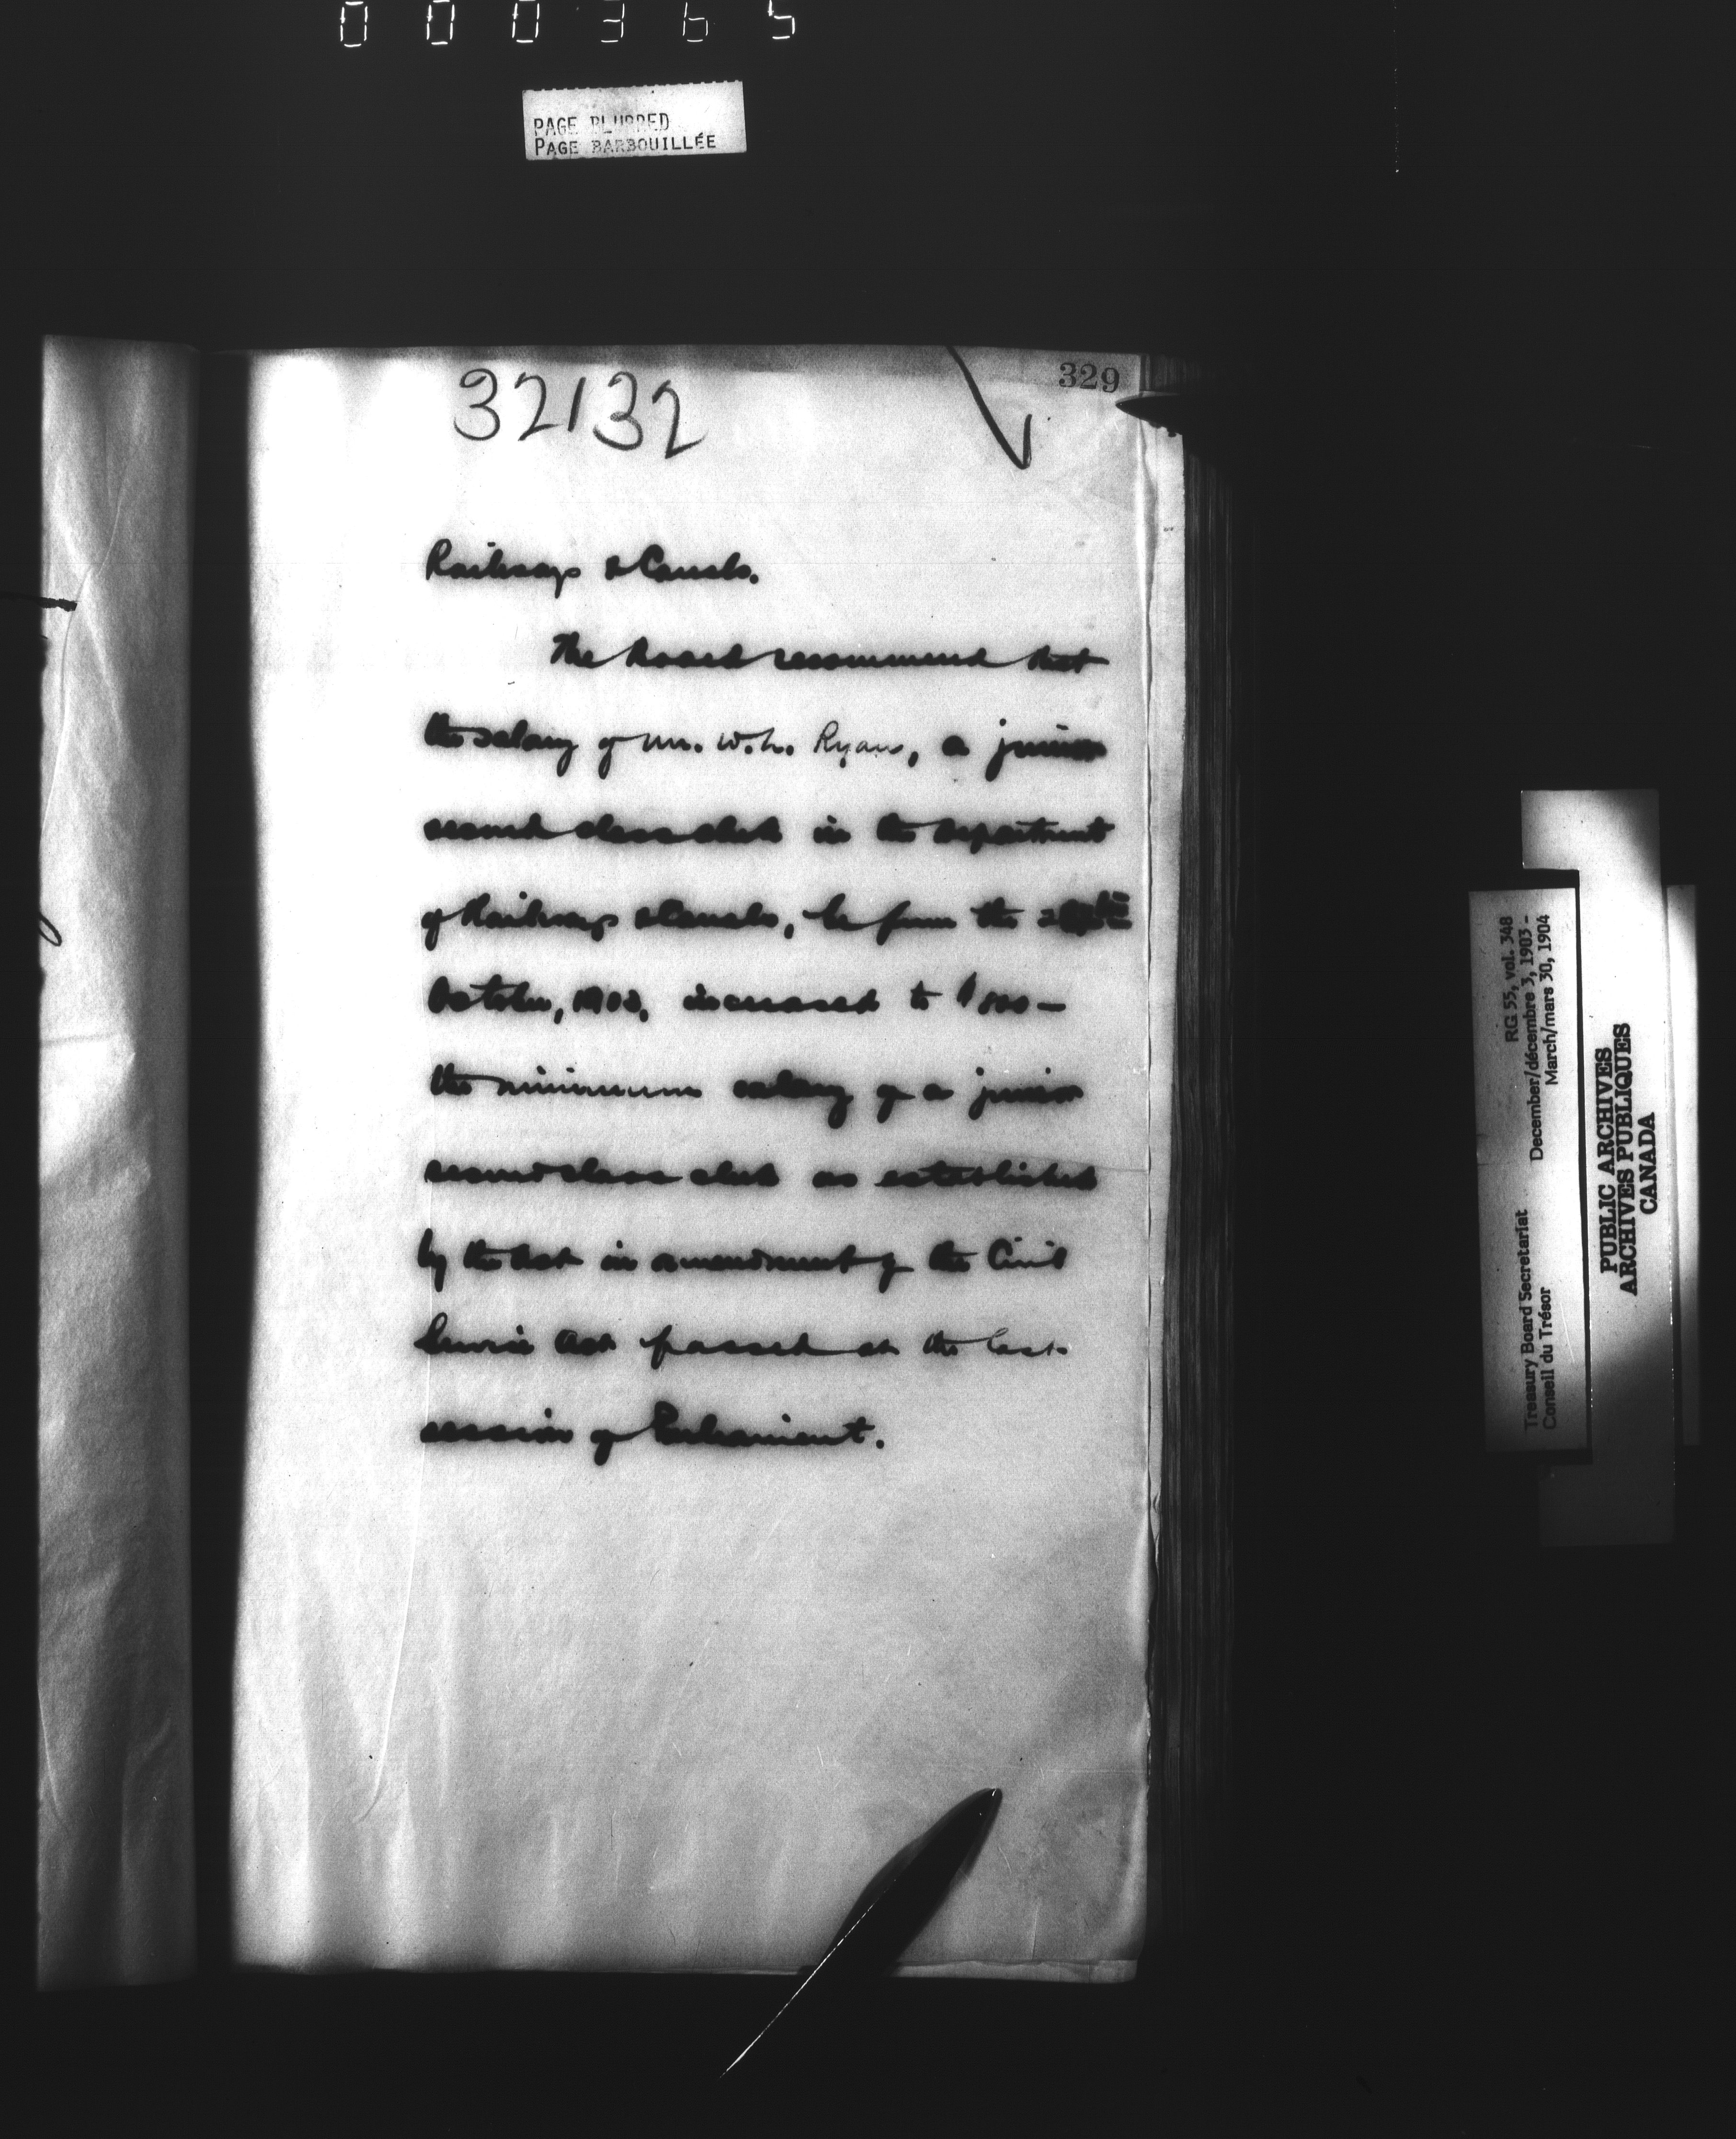 000365
PAGE BLURRED
PAGE BARBOUILLÉE
329
32132
Railways & Canals.
The Board recommend that
the salary of Mr. W.L. Ryan, a junior
second class clerk in the department
of Railways & Canals, be from the
October, 1903, increased to $800 —
the minimum salary of a junior
second class clerk as established
by the Act in amendment of the Civil
Service Act passed at the last
session of Parliament.
RG 55, vol. 348
Treasury Board Secretariat December/décembre 3, 1903 -
Conseil du Trésor March/mars 30, 1904
PUBLIC ARCHIVES
ARCHIVES PUBLIQUES
CANADA